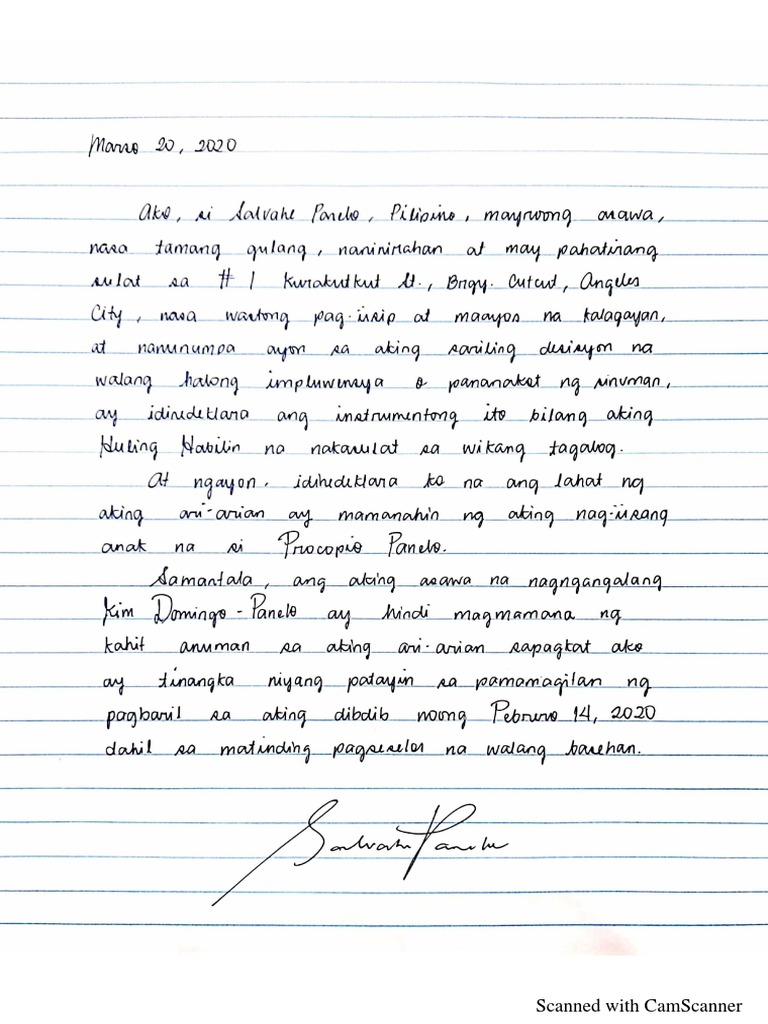 Marso 20, 2020
Ako, si Salvahe Panelo, Pilipino, mayroong asawa,
nasa tamang gulang, naninirahan at may pahatirang
sulat sa # 1 Kurakutkut St., Brgy. Cutcut, Angeles
City, nasa wastong pag-iisip at maayos na kalagayan,
at nanunumpa ayon sa aking sariling desisyon na
walang halong impluwensya o pananakot ng sinuman,
ay idinedeklara ang instrumentong ito bilang aking
Huling Habilin na nakasulat sa wikang tagalog.
At ngayon, idinedeklara ko na ang lahat ng
aking ari-arian ay mamanahin ng aking nag-iisang
anak na si Procopio Panelo.
Samantala, ang aking asawa na nagngangalang
Kim Domingo-Panelo ay hindi magmamana ng
kahit anuman sa aking ari-arian sapagkat ako
ay tinangka niyang patayin sa pamamagitan ng
pagbaril sa aking dibdib noong Pebrero 14, 2020
dahil sa matinding pagseselos na walang basehan.
Salvahe Panelo
Scanned with CamScanner